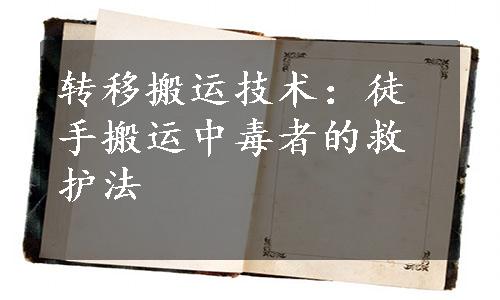 转移搬运技术：徒
手搬运中毒者的救
护法